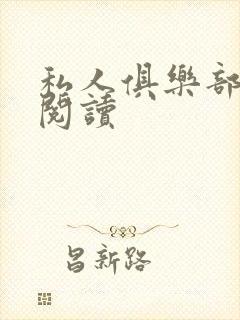 私人俱樂部
閱讀
昌新路